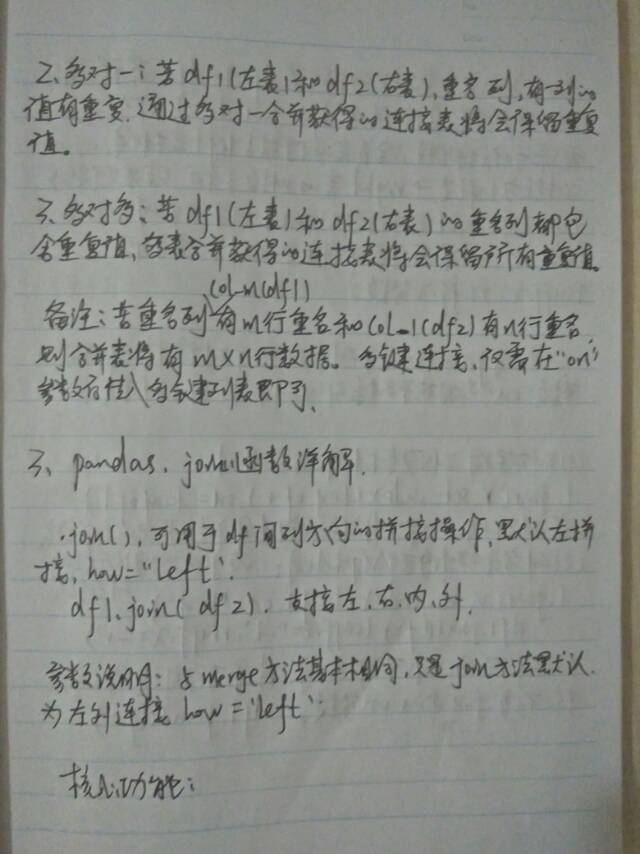 2、多对一：若df1(左表)和df2(右表)，重名列，有一列的
值有重复，通过多对一合并获得的连接表将会保留重复
值。
三、多对多：若df1(左表)和df2(右表)的重名列都包
含重复值，多表合并获得的连接表将会保留所有重复值。
col_m(df1)
备注：若重名列有m行重名和col_1(df2)有n行重名，
则合并表将有m×n行数据。多键连接，仅需在"on"
参数存传入多键列表即可、
三、pandas.join()函数详解.
.join()，可用于df间列方向的拼接操作，默认左拼
接，how="left".
df1.join(df2)．支持左、右、内、外.
参数说明：与merge方法基本相同，只是join方法默认
为左外连接how='left'
核心功能：